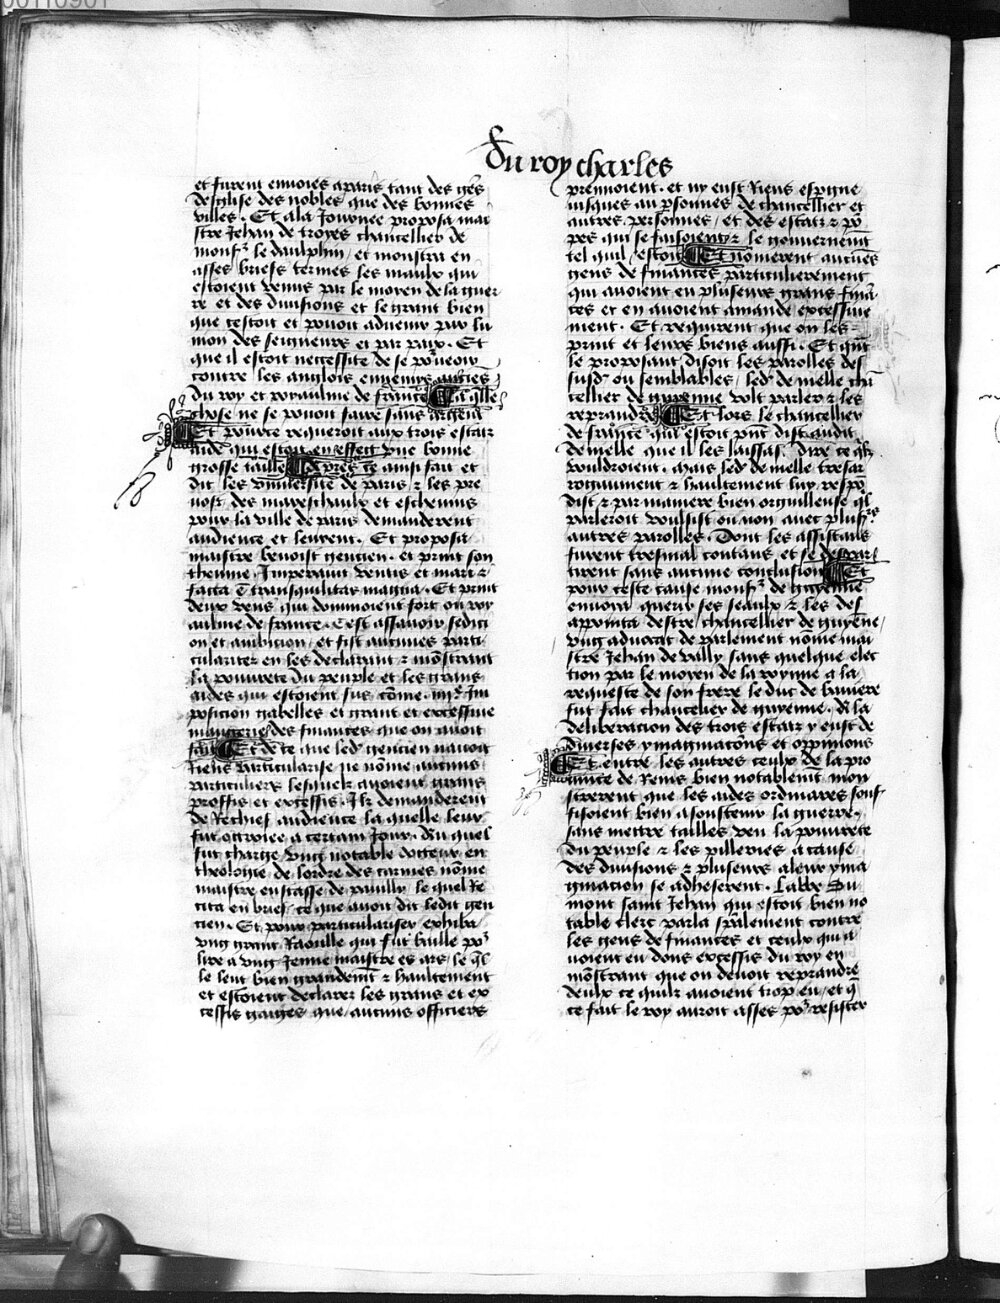 00110901
du roy charles
et furent enuoies a paris tant des gẽs
deglise des nobles que des bonnes
villes . Et ala Journee proposa mai
stre Jehan de troyes chancellier de
monsr le daulphin / et monstra en
asses briefs termes les maulx qui
estoient venus par le moyen de la guer
re et des diuisions et le grant bien
que cestoit et pouoit aduenir par lu
nion des seigneurs et par paix . Et
que il estoit necessite de se pourueoir
contre les anglois ennemis anciẽs
du roy et royaulme de france La qlle
chose ne se pouoit faire sans argent
Et pource requeroit aux trois estatz
aide qui estoit en effect vne bonne
grosse taille Apres ce ainsi fait et
dit les vniuersite de paris ⁊ les pre
uost des marchaulx et escheuins
pour la ville de paris demanderent
audience et leurent . Et proposa
maistre benoist gencien . et print son
theume Imperauit ventis et mari ⁊
facta ẽ tranquilitas magna . Et print
deux vens qui dominoient fort ou roy
aulme de france . Cest assauoir sedici
on et ambicion / et fist aucunes parti
culariter en les declarant ⁊ mõstrant
la pourete du peuple et les grans
aides qui estoient sus cõme . iiije Im
posicion gabelles et grant et excessiue
mangerie des finances que on auoit
fait Et de ce que led gencien nauoit
riens particularise ne nõme aucuns
particuliers lesquelz auoient grans
proffis et excessis . Ilz demanderent
de Rechief audience la quelle leur
fut octroiee a certain Jour . Au quel
fut charge vng notable docteur en
theologie de lordre des carmes nõme
maistre eustasse de pauilly le quel Re
cita en brief ce que auoit dit ledit gen
cien . Et pour particulariser exhiba
vng grant Raoulle qui fut baille por
lire a vng Jenne maistre es ars / le ql
le leut bien grandemẽt ⁊ haultement
et estoient declarer les grans et ex
cessis gaiges que aucuns officiers
prennoient . et ny eust Riens espigne
jusques au psonnes de chancellier et
autres personnes / et des estatz ⁊ põ
pes qui se faisoient ⁊ le gouuernemt
tel quil estoit Et nommerent aucuẽs
gens de finances particulierement
qui auoient eu plusieurs grans finã
ces et en auoient amande excessiue
ment . Et requirent que on les
print et leurs biens aussi . Et qnt
le proposant disoit les parolles des
susd ou semblables / led de nielle chã
cellier de guyenne volt parler ⁊ les
reprandre Et lors le chancellier
de france qui estoit pñt dist audit
de nielle que il les laissast dire ce qlz
vouldroient . Mais led de nielle tressar
rogaument ⁊ haultement luy respõ
dist ⁊ par maniere bien orguilleuse ql
parleroit voulsist ou non auec plusrs
autres parolles . Dont les assistans
furent tresmal contans et se depart
tirent sans aucune conclusion Et
pour ceste cause monsr de guyenne
enuoia querir ses seaulx ⁊ les des
apointa destre chancellier de guyẽne /
vng aduocat de parlement nõme mai
stre Jehan de vally sans quelque elec
tion par le moyen de la royne a la
requeste de son frere le duc de bauiere
fut fait chancelier de guyenne . A la
deliberacion des trois estatz y eust de
diuerses ymaginacõns et oppinions
Et entre les autres ceulx de la pro
uince de Reins bien notablemt mon
strerent que les aides ordinaires souf
fisoient bien a soustenir la guerre /
sans mettre tailles veu la pourete
du peuple ⁊ les pilleries a cause
des diuisions ⁊ plusieurs a leur yma
ginacion se adheserent . Labbe du
mont saint Jehan qui estoit bien no
table clerc parla spãlement contre
les gens de finances et ceulx qui a
uoient eu dons excessis du roy en
mõstrant que on deuoit reprandre
deulx ce quilz auoient trop eu / et q̃
ce fait le roy auroit asses por resister